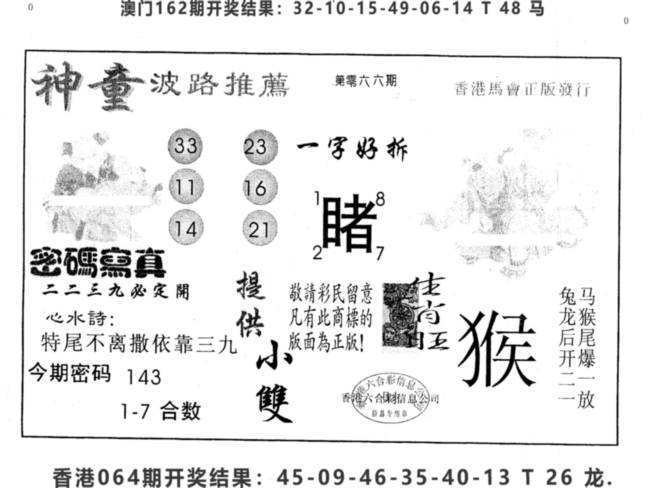 0
澳门162期开奖结果：32-10-15-49-06-14 T 48 马
0
神童波路推薦
第零六六期
香港馬會正版發行
33
23
11
16
14
21
一字好拆
1
8
睹
2
7
密碼寫真
二二三九必定開
心水詩:
特尾不离撒依靠三九
今期密码 143
1-7 合数
提供
小雙
敬請彩民留意
凡有此商標的
版面為正版!
生肖旺
猴
马猴尾爆一放
兔龙后开二一
香港六合彩信息公司
香港064期开奖结果：45-09-46-35-40-13 T 26 龙.